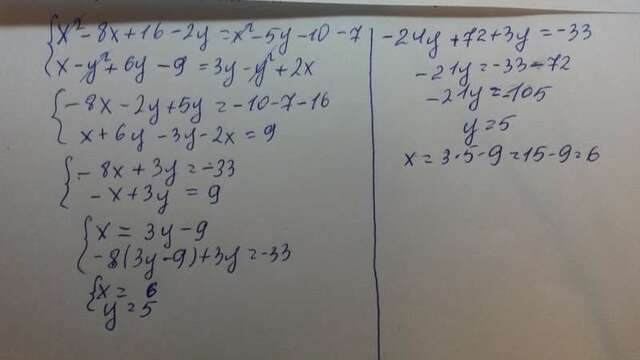 x²-8x+16-2y=x²-5y-10-7
x-y²+6y-9=3y-y²+2x
-8x-2y+5y=-10-7-16
x+6y-3y-2x=9
-8x+3y=-33
-x+3y=9
x=3y-9
-8(3y-9)+3y=-33
x=6
y=5
-24y+72+3y=-33
-21y=-33-72
-21y=-105
y=5
x=3·5-9=15-9=6